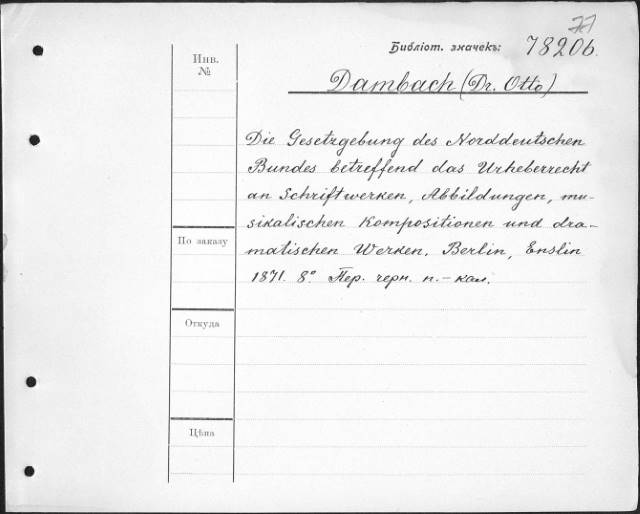 77
Библіот. значекъ: 78206.
Инв.
№
Dambach (Dr. Otto)
Die Gesetzgebung des Norddeutschen
Bundes betreffend das Urheberrecht
an Schriftwerken, Abbildungen, mu-
sikalischen Kompositionen und dra-
matischen Werken. Berlin, Enslin
1871. 8° Пер. черн. п.-кал.
По заказу
Откуда
Цѣна